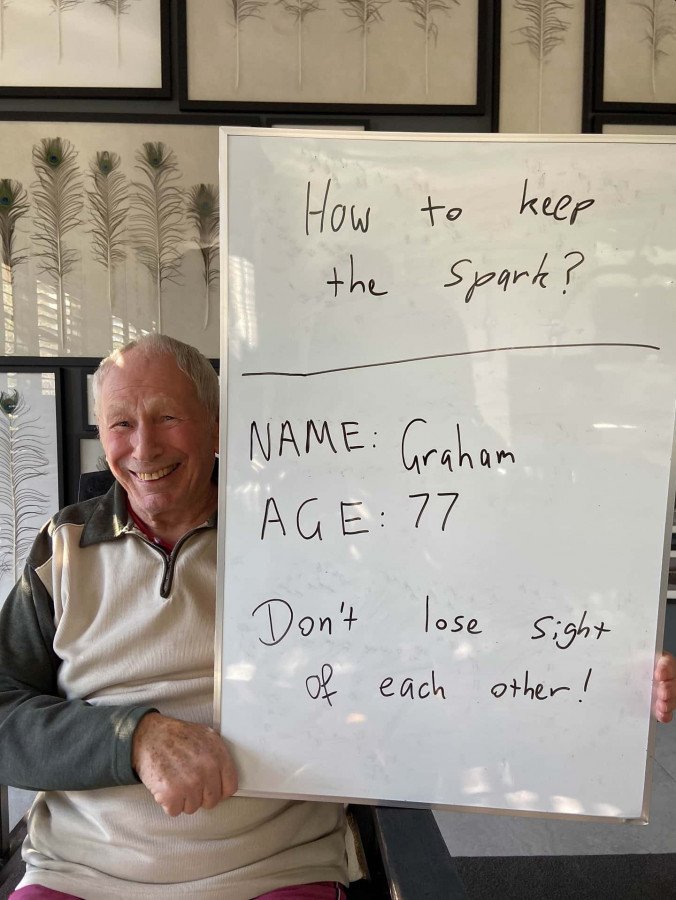 How to keep
the spark?
NAME: Graham
AGE: 77
Don't lose sight
of each other!